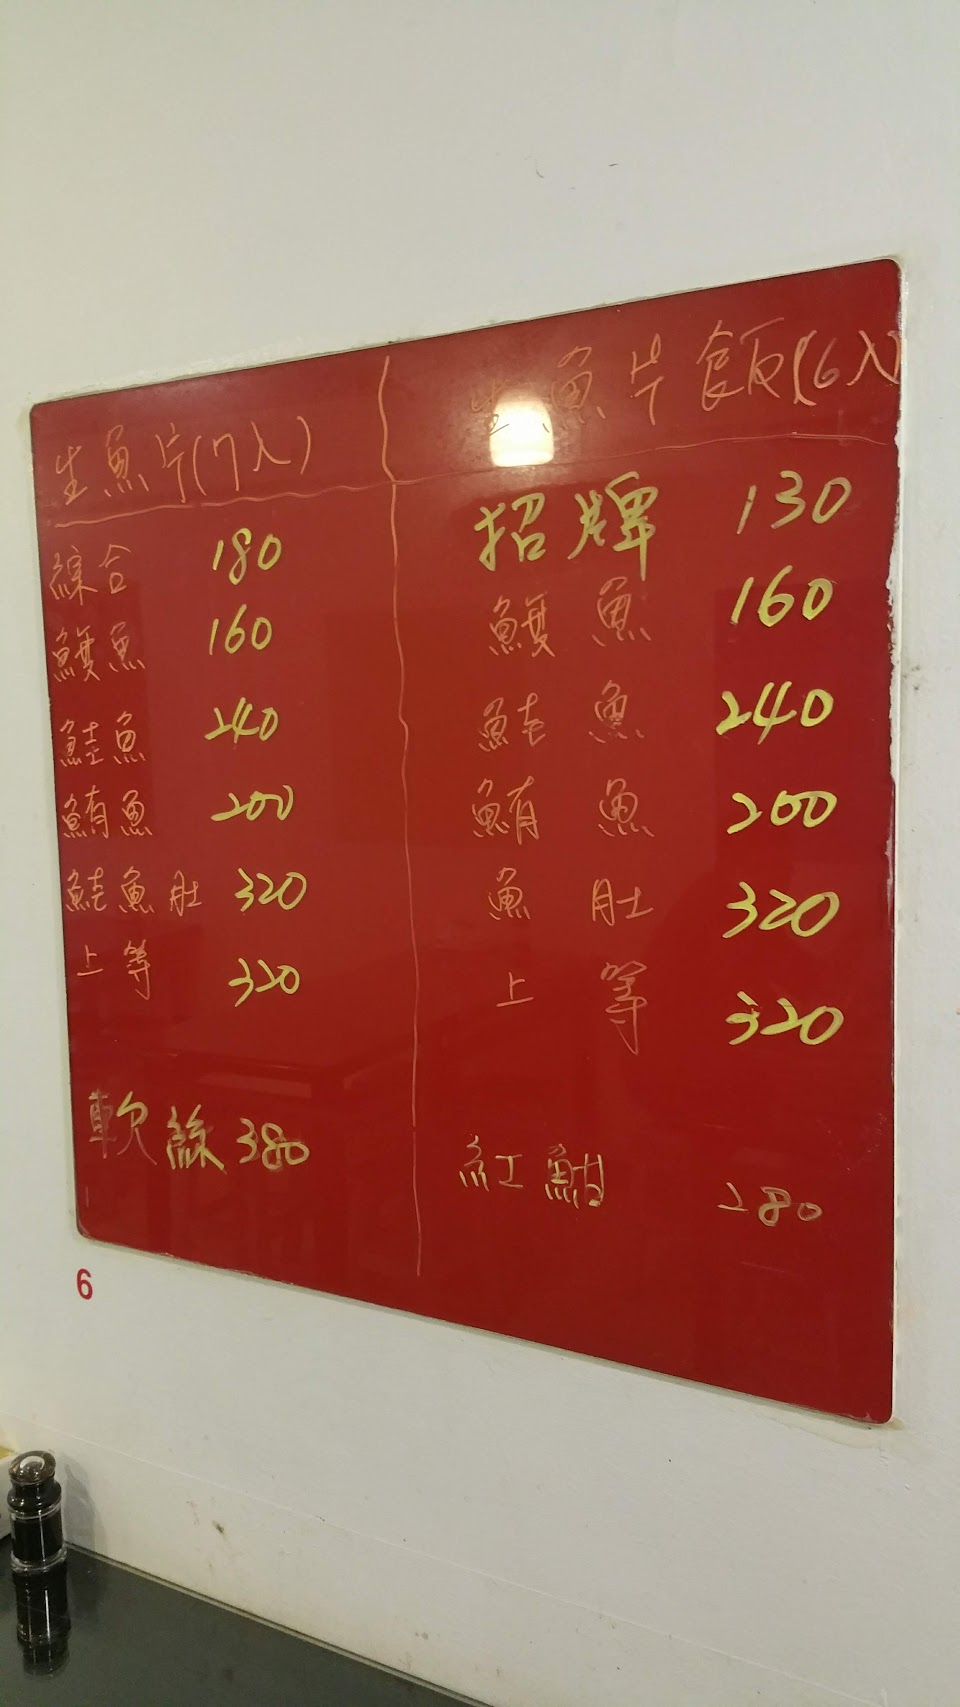 生魚片(7入)
綜合 180
鱈魚 160
鮭魚 240
鮪魚 200
鮭魚肚 320
上等 320
軟絲 380
生魚片飯(6入)
招牌 130
鱈魚 160
鮭魚 240
鮪魚 200
魚肚 320
上等 320
紅魽 280
6